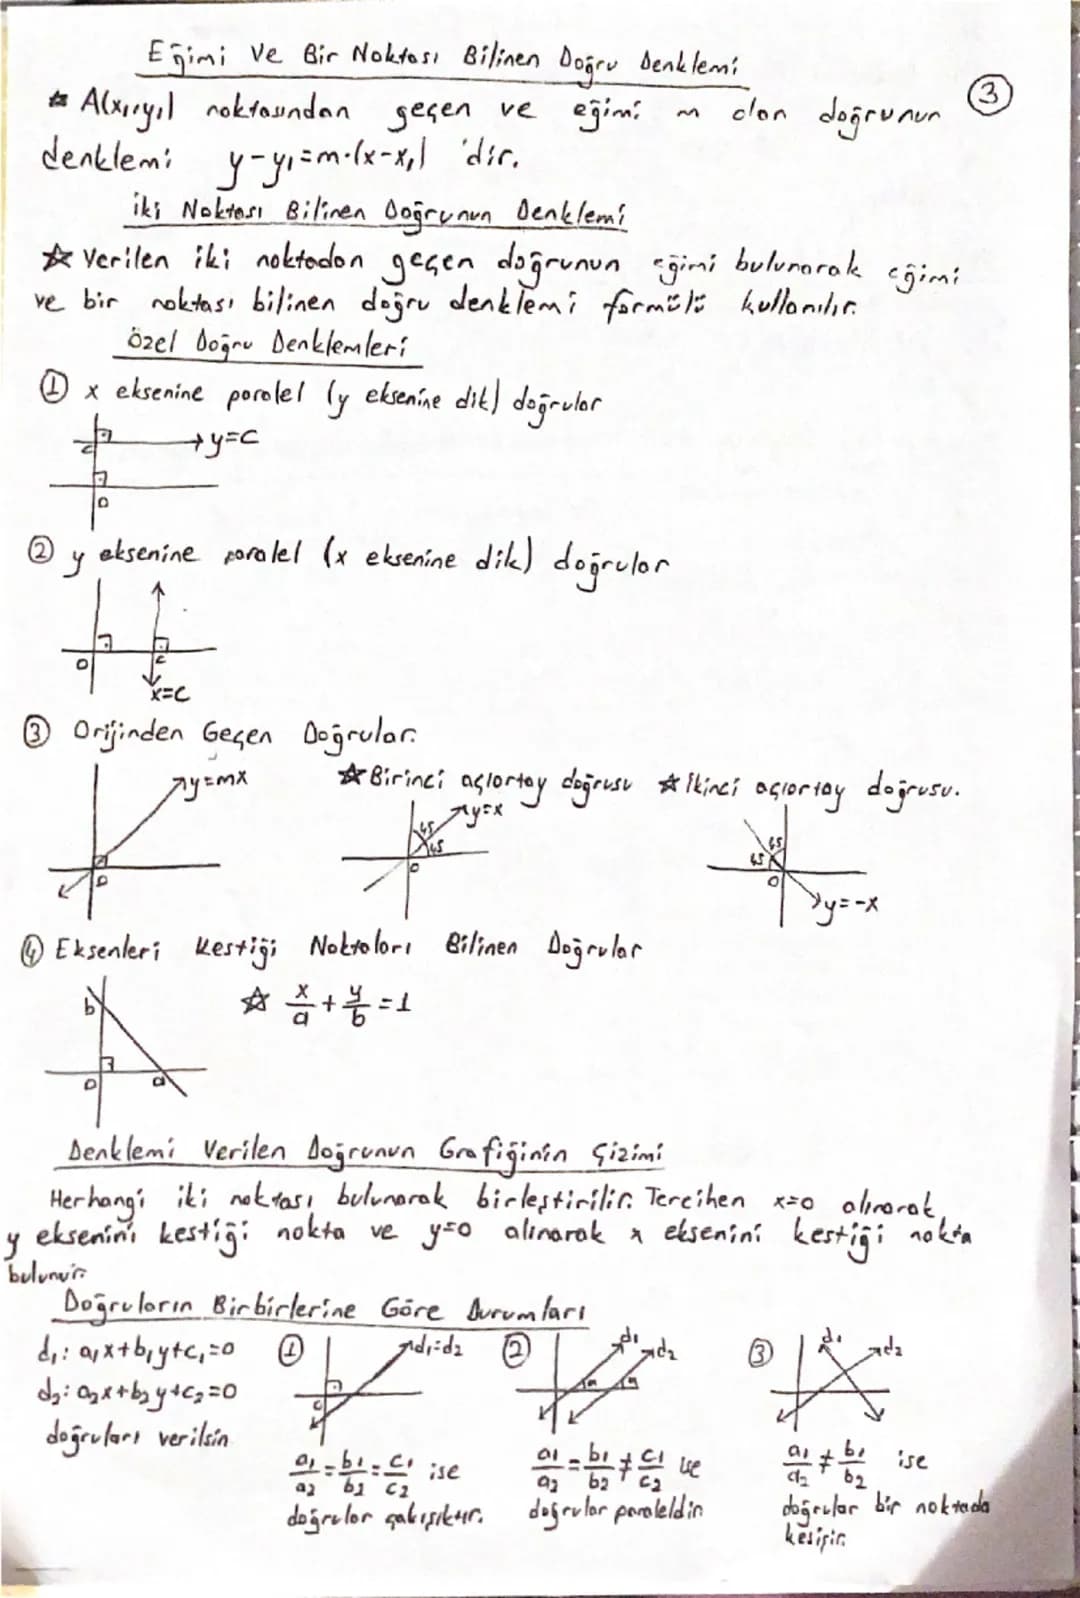 Eğimi Ve Bir Noktası Bilinen Doğru Denklemi
③
☆ A(x₁,y₁) noktasından geçen ve eğimi m olan doğrunun
denklemi y-y₁=m.(x-x₁) 'dir.
İki Noktası Bilinen Doğrunun Denklemi
☆ Verilen iki noktadan geçen doğrunun eğimi bulunarak eğimi
ve bir noktası bilinen doğru denklemi formülü kullanılır.
Özel Doğru Denklemleri
① x eksenine paralel (y eksenine dik) doğrular
c y=c
0
② y eksenine paralel (x eksenine dik) doğrular
0 c
x=c
③ Orijinden Geçen Doğrular.
y=mx ☆ Birinci açıortay doğrusu ☆ İkinci açıortay doğrusu.
45 y=x 45
45 45
0 0 0
y=-x
④ Eksenleri Kestiği Noktaları Bilinen Doğrular
b ☆ x/a + y/b = 1
0 a
Denklemi Verilen Doğrunun Grafiğinin Çizimi
Herhangi iki noktası bulunarak birleştirilir. Tercihen x=0 alınarak
y eksenini kestiği nokta ve y=0 alınarak x eksenini kestiği nokta
bulunur.
Doğruların Birbirlerine Göre Durumları
d₁: a₁x+b₁y+c₁=0 ① d₁=d₂ ② d₁ d₂ ③ d₁ d₂
d₂: a₂x+b₂y+c₂=0
doğruları verilsin
a₁/a₂ = b₁/b₂ = c₁/c₂ ise
doğrular çakışıktır.
a₁/a₂ = b₁/b₂ ≠ c₁/c₂ ise
doğrular paraleldir
a₁/a₂ ≠ b₁/b₂ ise
doğrular bir noktada
kesişir.